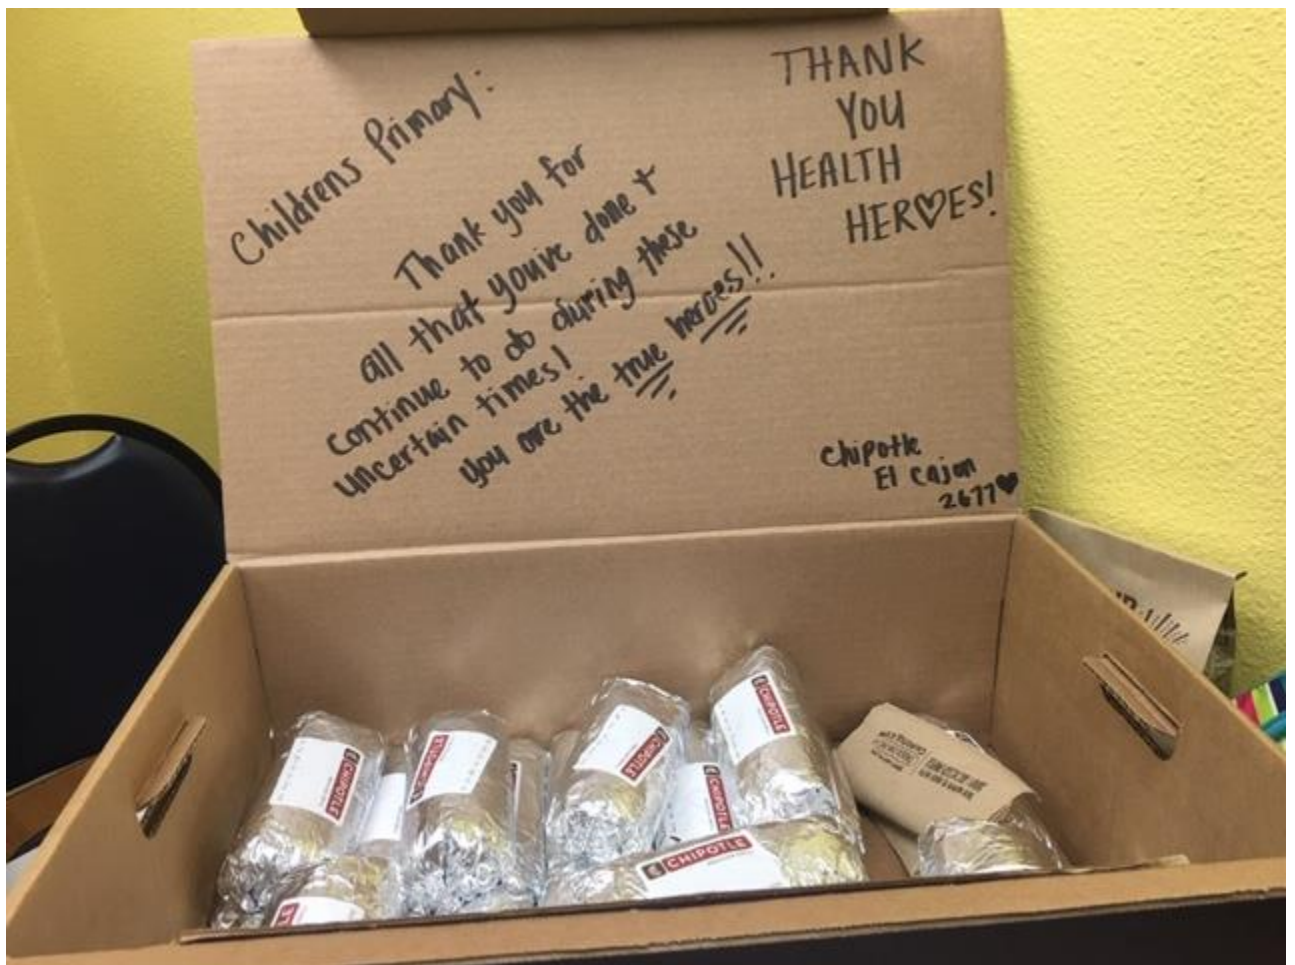 Childrens Primary:
Thank you for
all that youve done +
continue to do during these
uncertain times!
you are the true heroes!!
THANK
YOU
HEALTH
HER♡ES!
Chipotle
El Cajon
2677♥
CHIPOTLE
CHIPOTLE
CHIPOTLE
CHIPOTLE
CHIPOTLE
CHIPOTLE